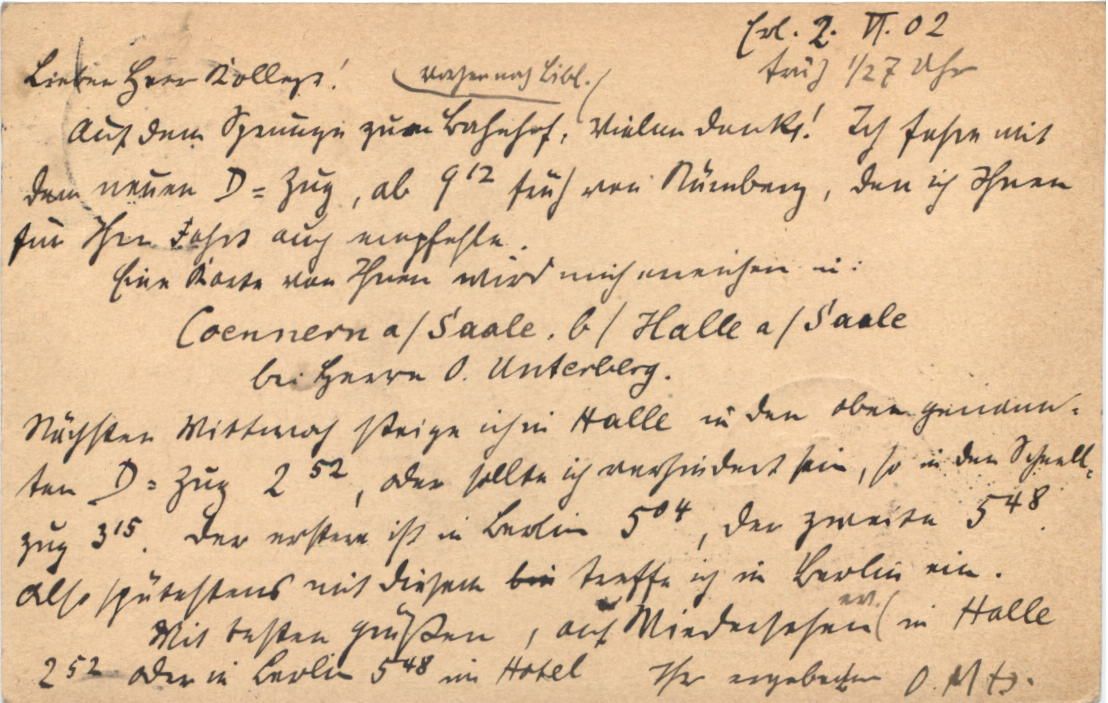 Erl. 2. VI. 02
früh 1/27 Uhr
Lieber Herr Kollege!
Auf dem Sprunge zum Bahnhof, vielen Dank! Ich fahre mit
dem neuen D=Zug, ab 9 12 früh von Nürnberg, den ich Ihnen
für Ihre Fahrt auch empfehle.
Eine Karte von Ihnen wird mich erreichen in:
Coennern a/Saale. b/Halle a/Saale
bei Herrn O. Unterberg.
Nächsten Mittwoch steige ich in Halle in den oben genann-
ten D=Zug 2 52, oder sollte ich verhindert sein, so in den Schnell-
zug 3 15. Der erstere ist in Berlin 5 04, der zweite 5 48.
Also spätestens mit diesem treffe ich in Berlin ein.
Mit besten Grüßen, auf Wiedersehen (ev. in Halle
2 52 oder in Berlin 5 48 im Hotel Ihr ergebener O.